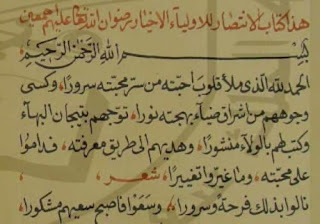 هذا كتاب الانتصار للاولياء الاخيار رضوان الله تعالى عليهم اجمعين
بسم الله الرحمن الرحيم
الحمد لله الذى ملأ قلوب احبته من سر محبته سرورا، وكسى
وجوههم من اشراق ضياء بهجته نورا، توجهم بتيجان البهاء
وكتب لهم بالولاء منشورا، وهديهم الى طريق معرفته، فداموا
على محبته، وما غيروا تغييرا، شعر،
نالوا بذلك فرحة وسرورا، وسعوا فاصبح سعيهم مشكورا